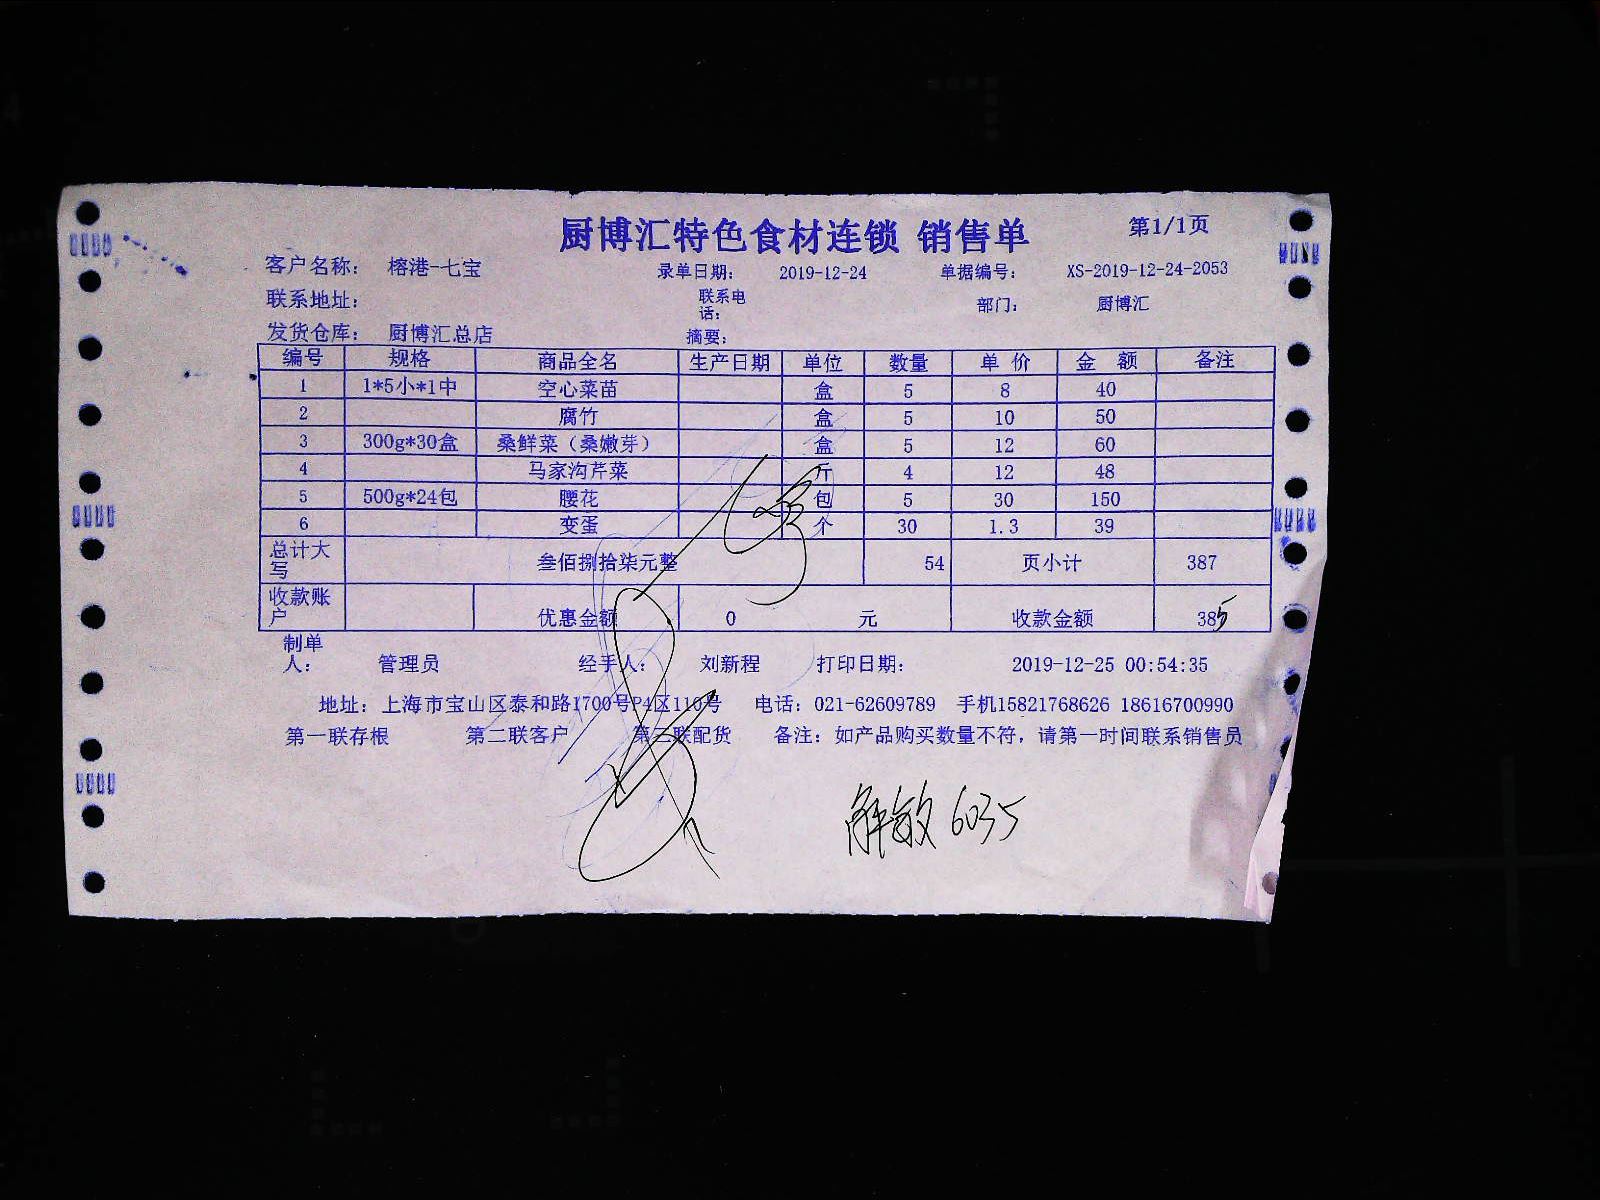 厨博汇特色食材连锁 销售单 第1/1页
客户名称： 榕港-七宝 录单日期： 2019-12-24 单据编号： XS-2019-12-24-2053
联系地址： 联系电话： 部门： 厨博汇
发货仓库： 厨博汇总店 摘要：
编号 规格 商品全名 生产日期 单位 数量 单 价 金 额 备注
1 1*5小*1中 空心菜苗 盒 5 8 40
2 腐竹 盒 5 10 50
3 300g*30盒 桑鲜菜（桑嫩芽） 盒 5 12 60
4 马家沟芹菜 斤 4 12 48
5 500g*24包 腰花 包 5 30 150
6 变蛋 个 30 1.3 39
总计大写 叁佰捌拾柒元整 54 页小计 387
收款账户 优惠金额 0 元 收款金额 385
制单人： 管理员 经手人： 刘新程 打印日期： 2019-12-25 00:54:35
地址：上海市宝山区泰和路1700号P4区110号 电话：021-62609789 手机15821768626 18616700990
第一联存根 第二联客户 第三联配货 备注：如产品购买数量不符，请第一时间联系销售员
解敏 6035